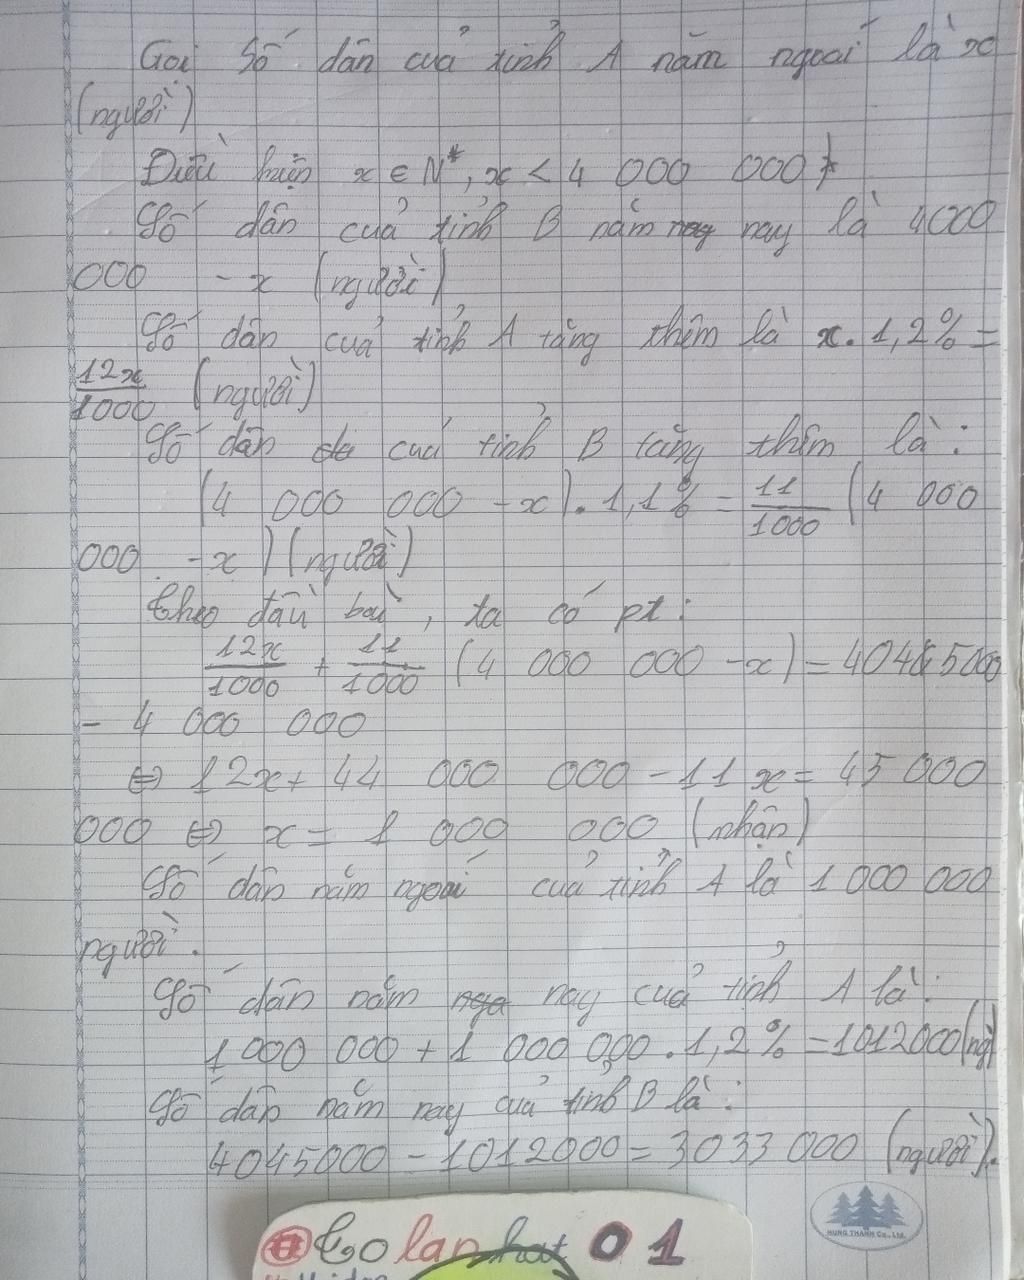 Gọi Số dân của tỉnh A năm ngoái là x
(người)
Điều kiện x ∈ N*, x < 4 000 000
Số dân của tỉnh B năm nay là 4000
000 - x (người)
Số dân của tỉnh A tăng thêm là x. 1,2% =
12x/1000 (người)
Số dân của tỉnh B tăng thêm là :
(4 000 000 - x). 1,1% = 11/1000 (4 000
000 - x) (người)
Theo đầu bài, ta có pt :
12x/1000 + 11/1000 (4 000 000 - x) = 4045000
- 4 000 000
⇔ 12x + 44 000 000 - 11x = 45 000
000 ⇔ x = 1 000 000 (nhận)
Số dân năm ngoái của tỉnh A là 1 000 000
người.
Số dân năm nay của tỉnh A là :
1 000 000 + 1 000 000. 1,2% = 1012000(ng)
Số dân năm nay của tỉnh B là :
4045000 - 1012000 = 3033 000 (người).
HUNG THANH Co., Ltd.
Colanhat 01